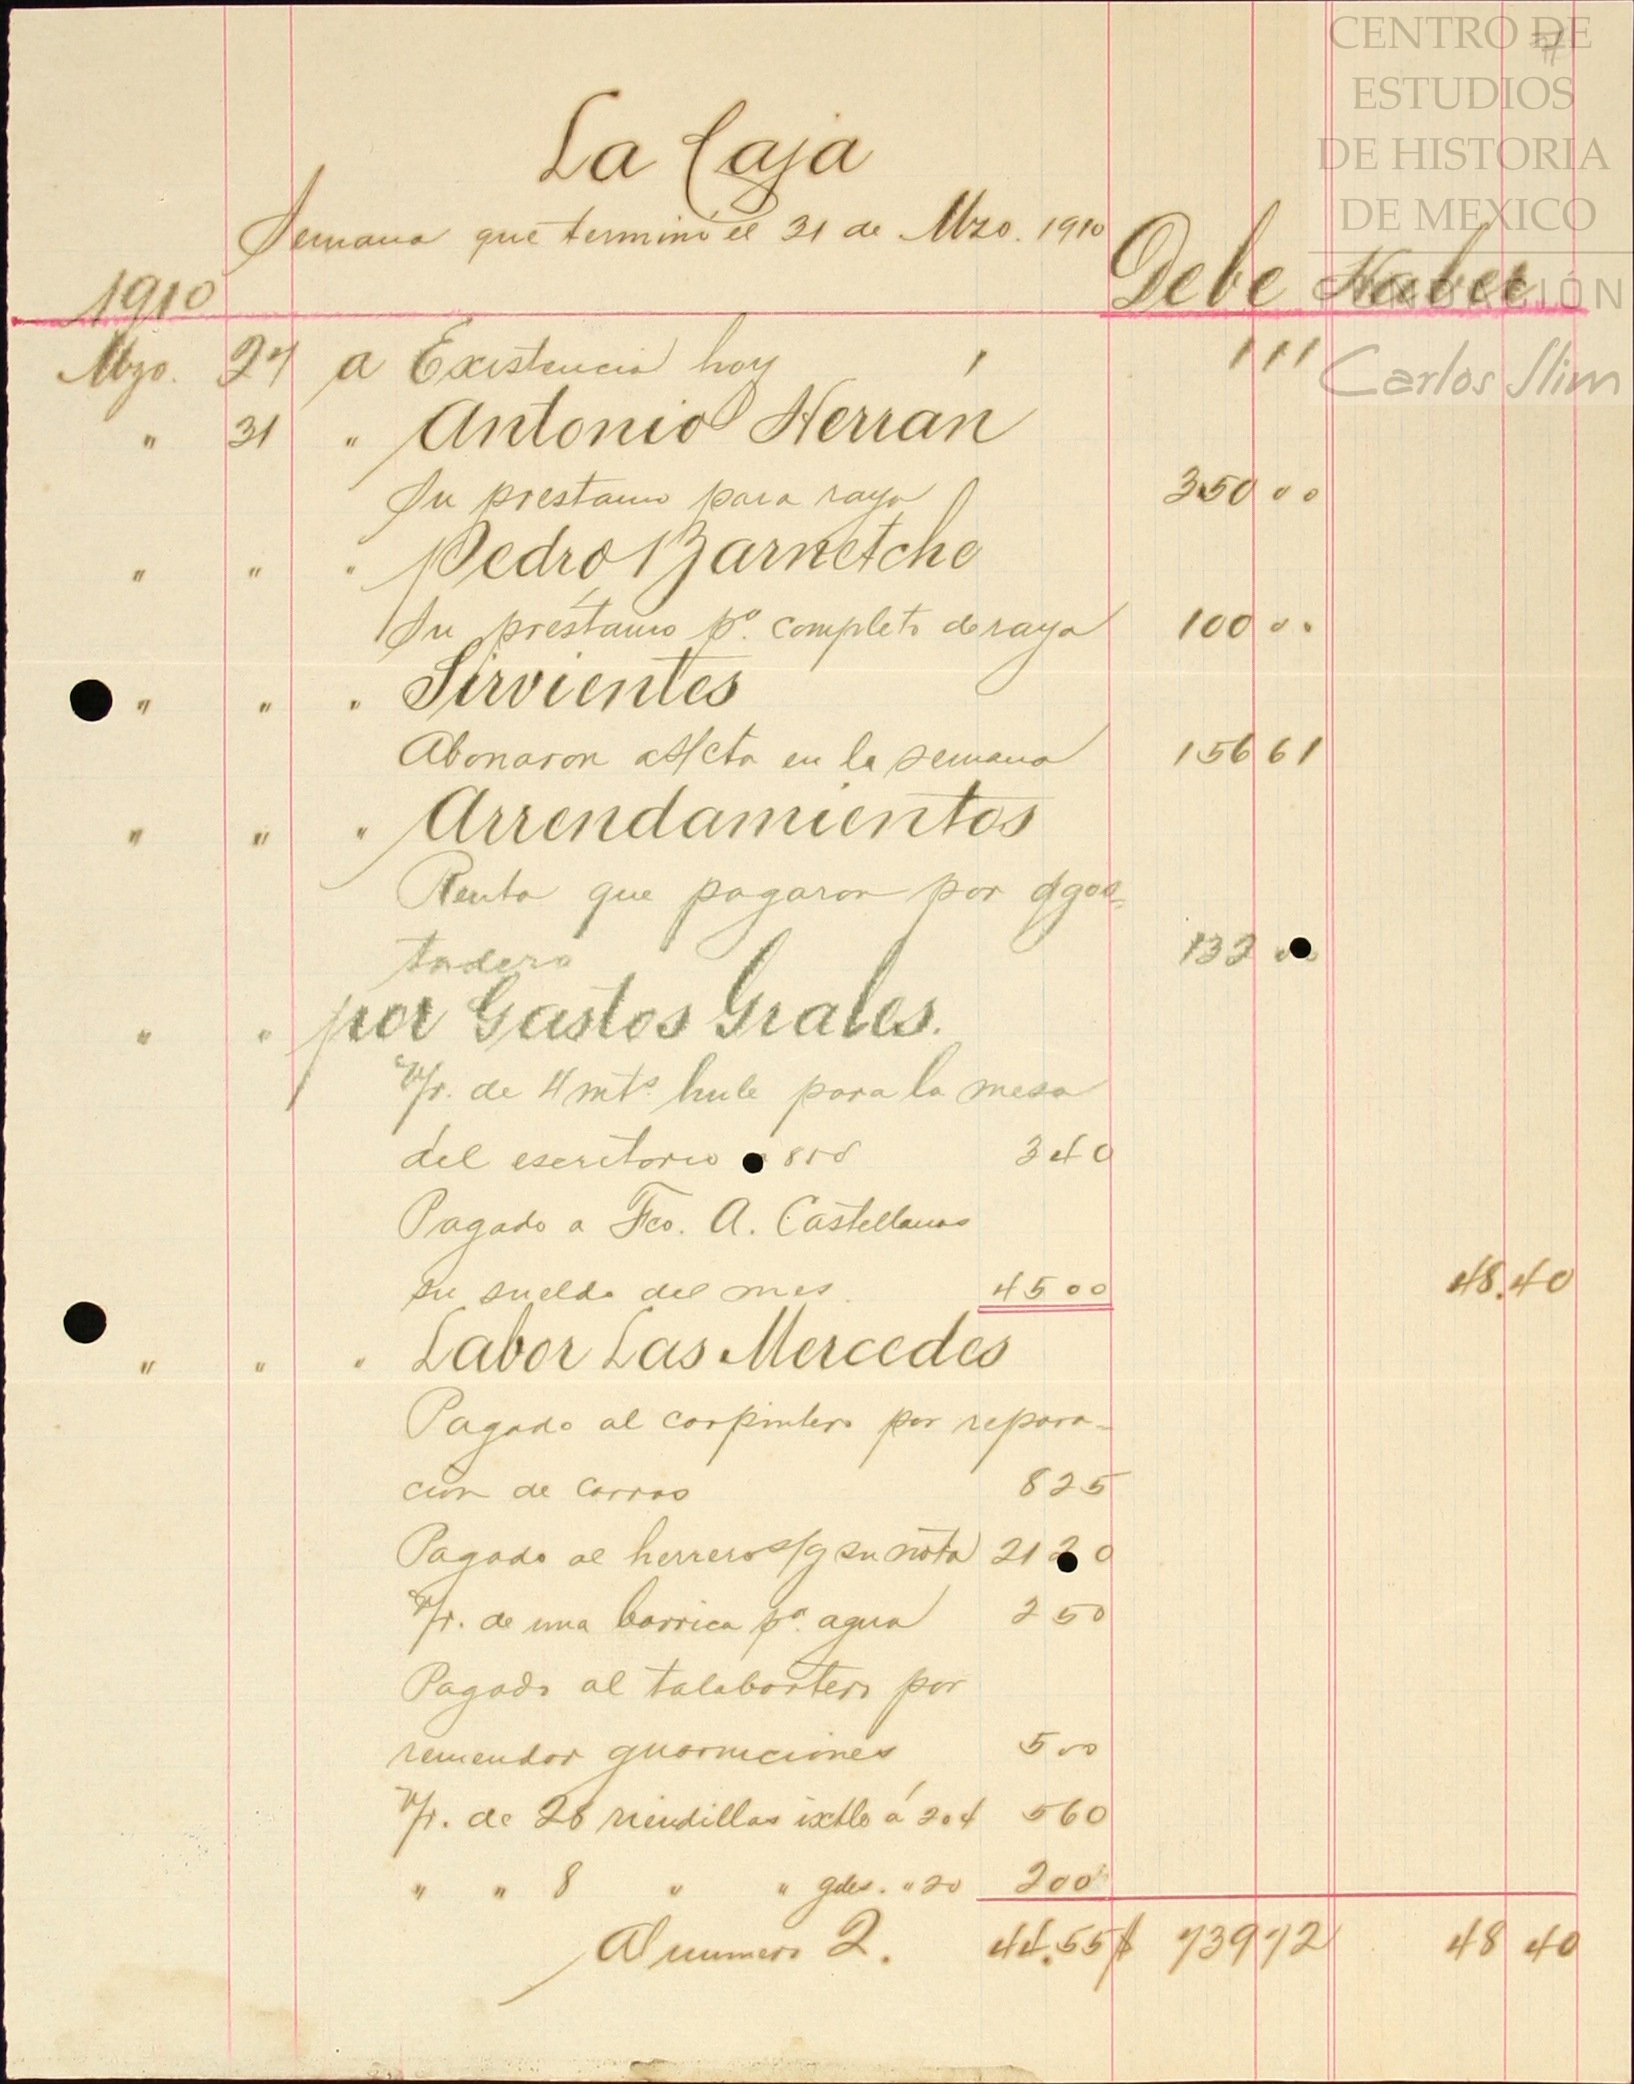 CENTRO DE
ESTUDIOS
DE HISTORIA
DE MEXICO
FUNDACIÓN
Carlos Slim
La Caja
Semana que terminó el 31 de Mzo. 1910
1910 Debe Haber
Mzo. 24 a Existencia hoy 1 11
" 31 " Antonio Herrán
Su prestamo para raya 350 00
" " " Pedro Barnetche
Su préstamo pa. completo de raya 100 00
" " " Sirvientes
Abonaron a s/cta en la semana 156 61
" " " Arrendamientos
Renta que pagaron por agos-
tadero 132 00
" " por Gastos Grales.
V/r. de 4 mts. hule para la mesa
del escritorio 3 40
Pagado a Fco. A. Castellanos
su sueldo del mes. 45 00 48.40
" " " Labor Las Mercedes
Pagado al carpintero por repara-
ción de carros 8 25
Pagado al herrero s/g su nota 21 20
V/r. de una barrica pa. agua 2 50
Pagado al talabartero por
remendar guarniciones 5 00
V/r. de 28 riendillas ixtle á 20 ¢ 5 60
" " 8 " " gdes. " 20 2 00
Al numero 2. 44.55 $ 739 72 48 40